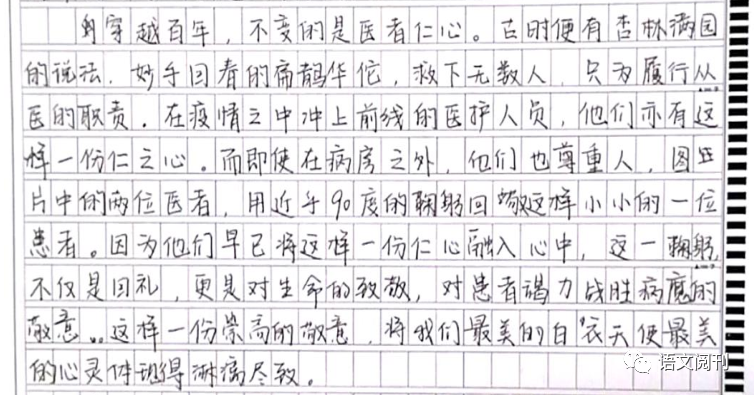 穿越百年，不变的是医者仁心。古时便有杏林满园
的说法，妙手回春的扁鹊华佗，救下无数人，只为履行从
医的职责。在疫情之中冲上前线的医护人员，他们亦有这
样一份仁之心。而即使在病房之外，他们也尊重人，图
片中的两位医者，用近乎90度的鞠躬回敬这样小小的一位
患者。因为他们早已将这样一份仁心融入心中，这一鞠躬，
不仅是回礼，更是对生命的致敬，对患者竭力战胜病魔的
敬意。这样一份崇高的敬意，将我们最美的白衣天使最美
的心灵体现得淋漓尽致。
语文阅刊